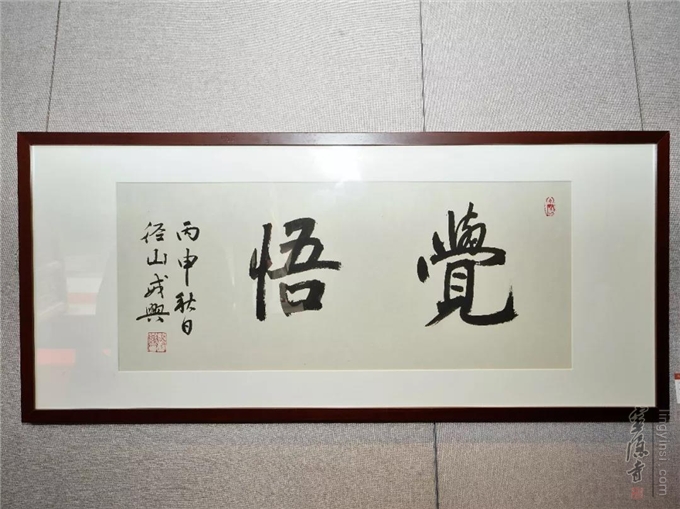 覺悟
丙申秋日
径山戒興
靈隱寺
lingyinsi.com